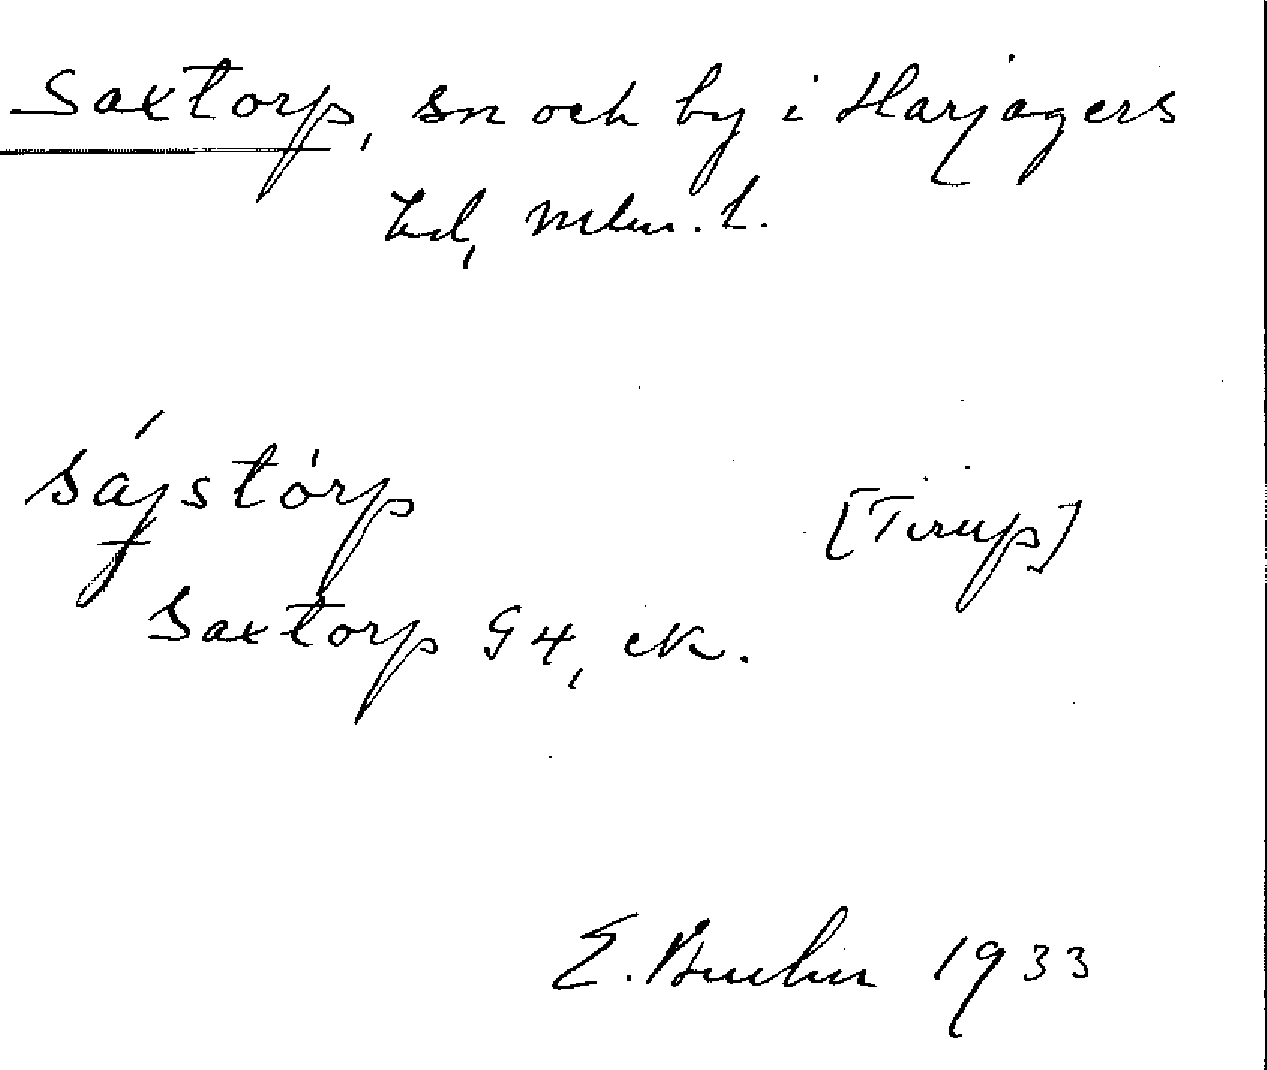 Saxtorp, sn och by i Harjagers
hd, Mlm. l.
sájstórp [Tirup]
Saxtorp G4, ek.
E. 1933